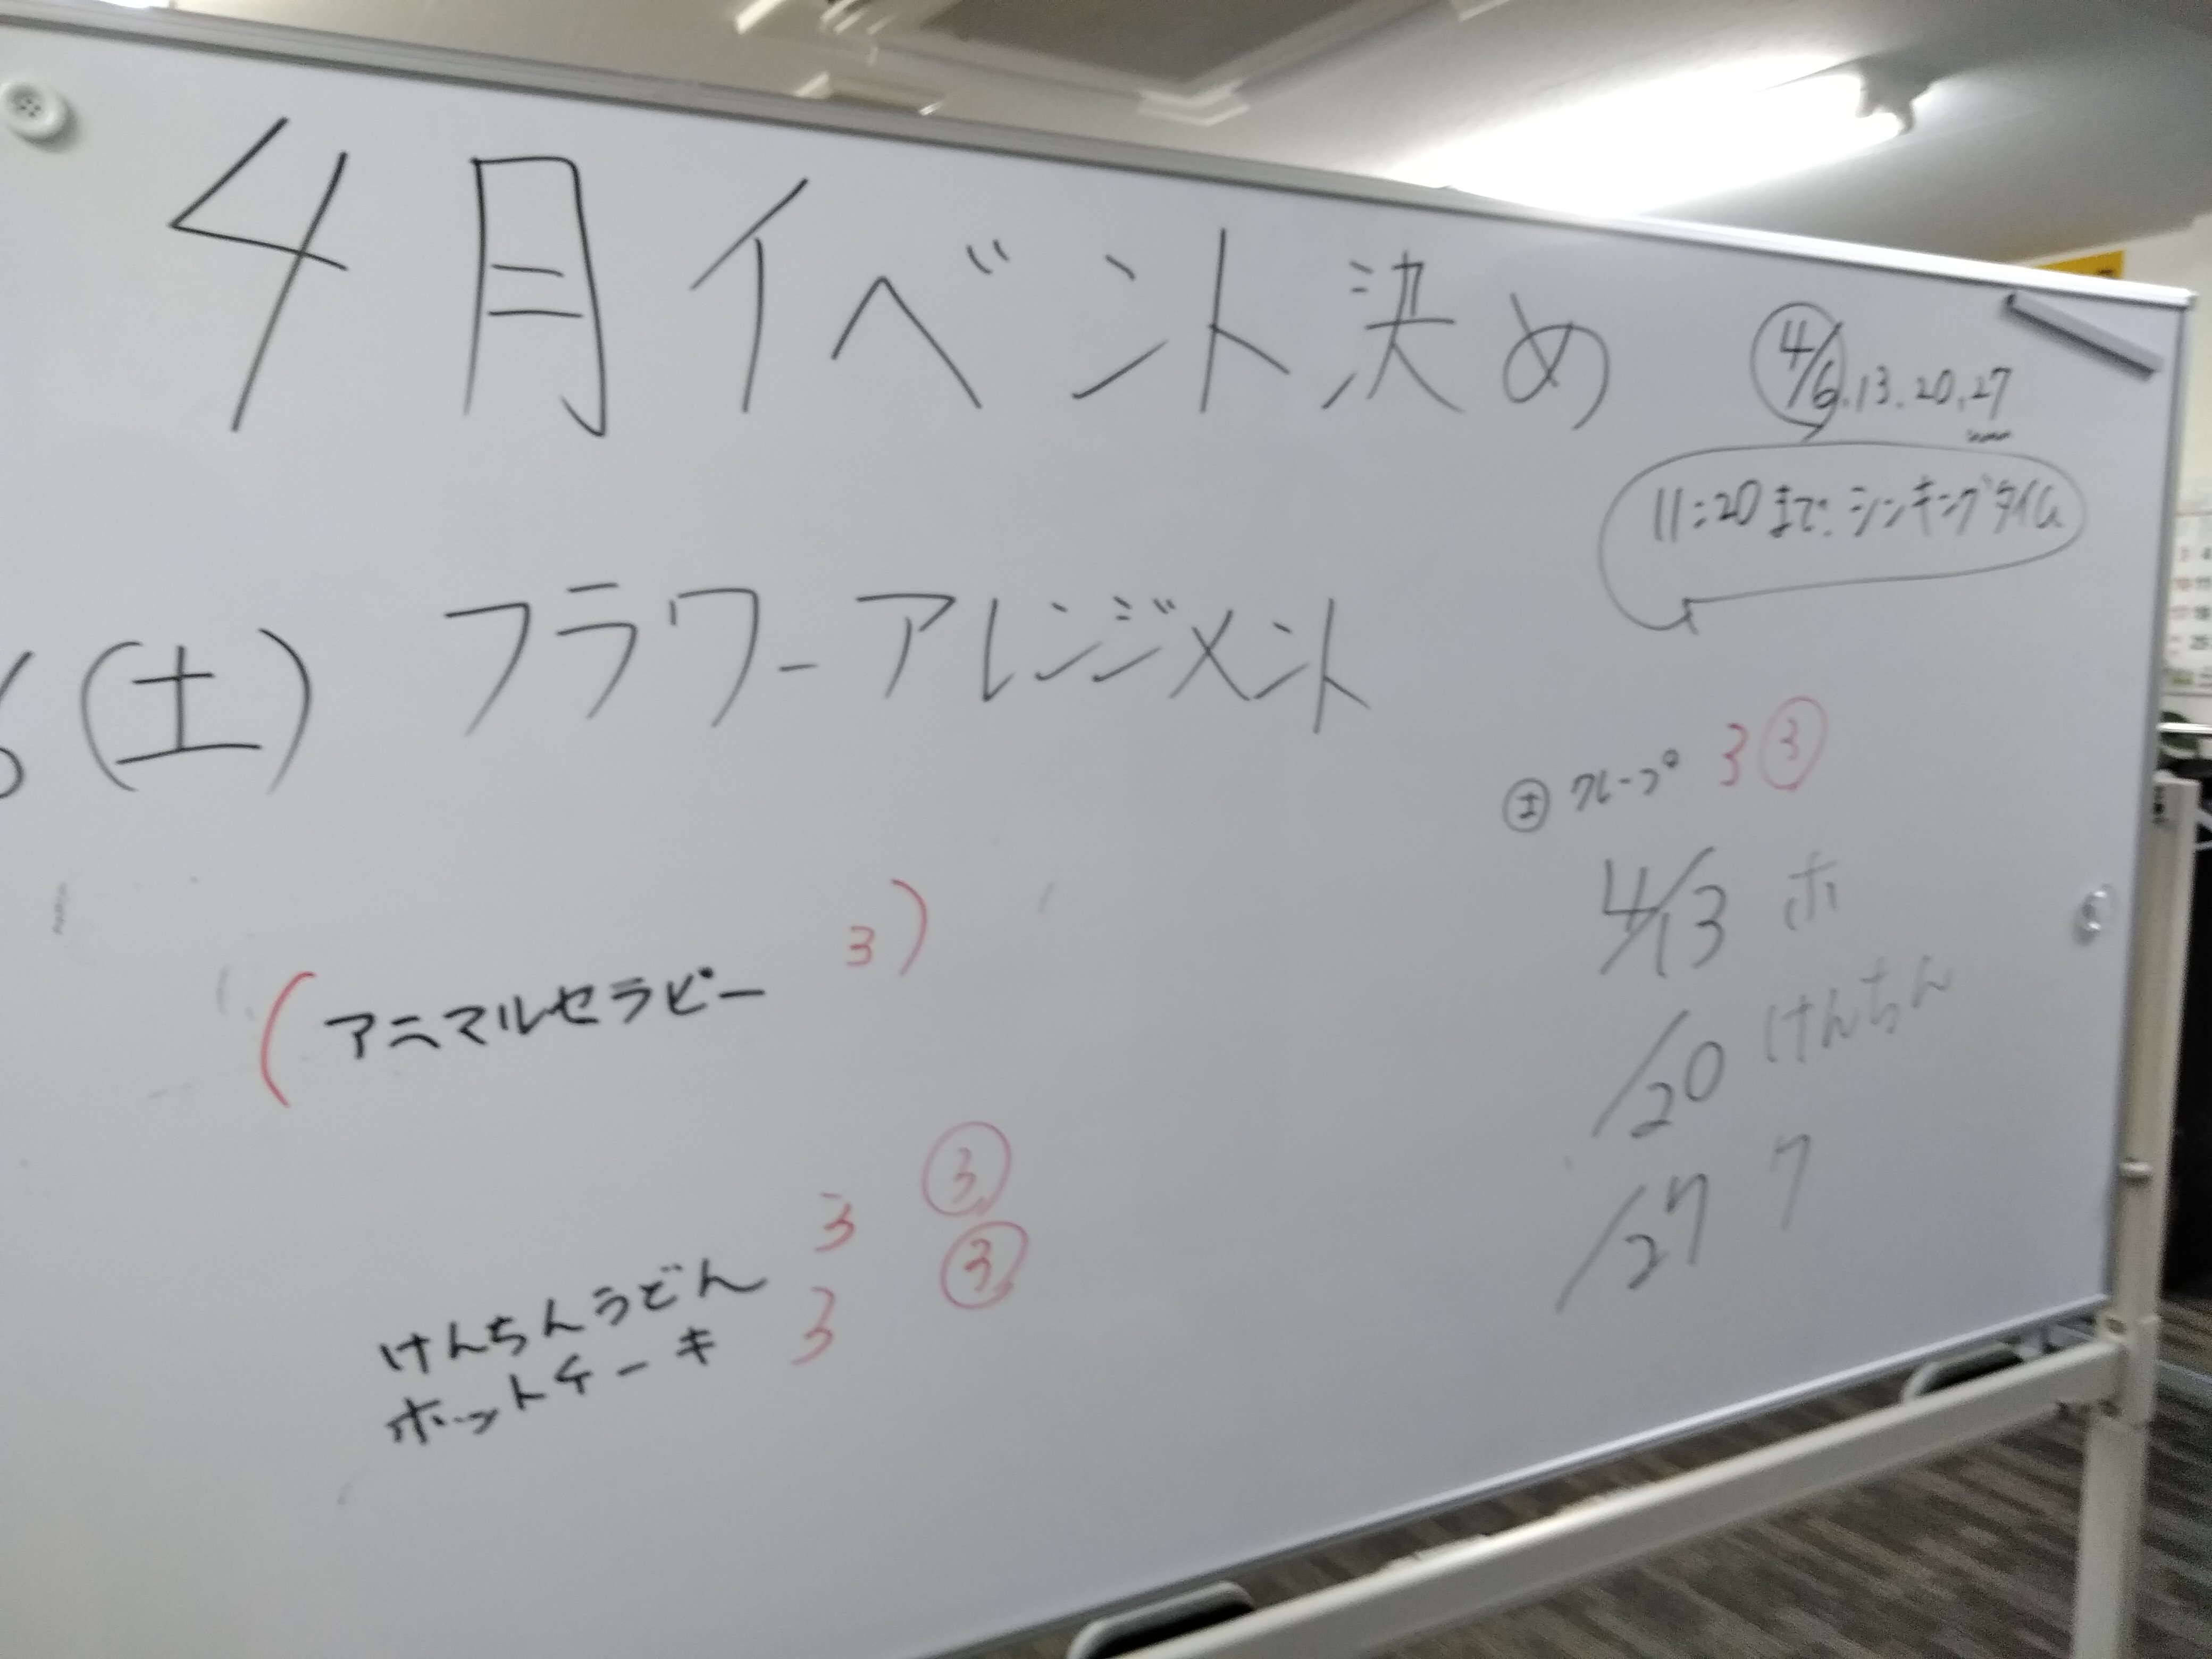 4月イベント決め
4/6.13.20.27
11:20まで.シンキングタイム
6(土) フラワーアレンジメント
㊏ クレープ 3 ③
4/13 ホ
(アニマルセラピー 3)
/20 けんちん
けんちんうどん 3 ③
/27 ク
ホットケーキ 3 ③